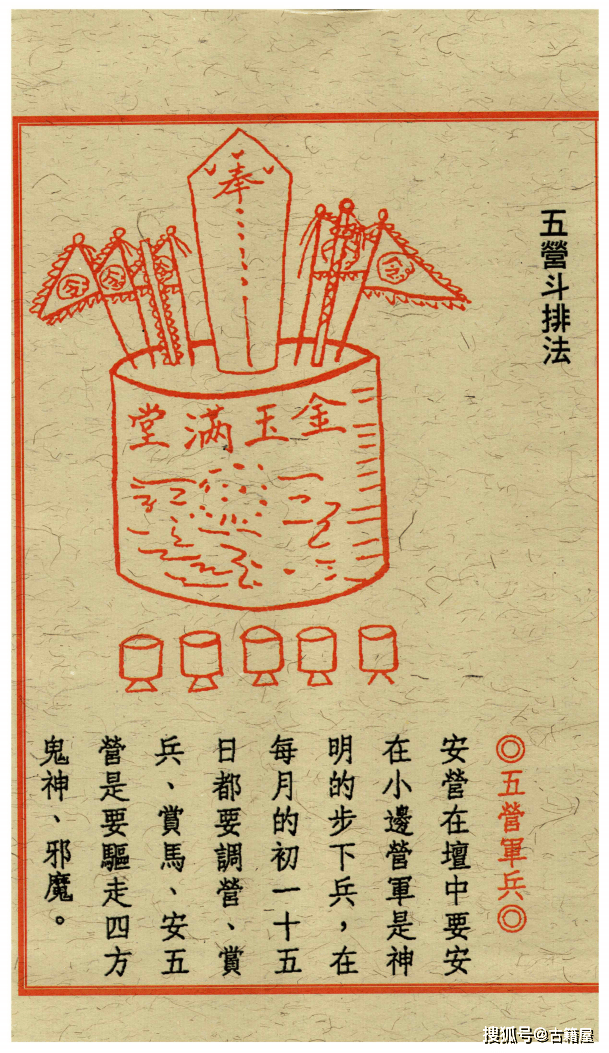 五營斗排法
奉
金玉滿堂
◎五營軍兵◎
安營在壇中要安
在小邊營軍是神
明的步下兵，在
每月的初一十五
日都要調營、賞
兵、賞馬、安五
營是要驅走四方
鬼神、邪魔。
搜狐号@古籍屋